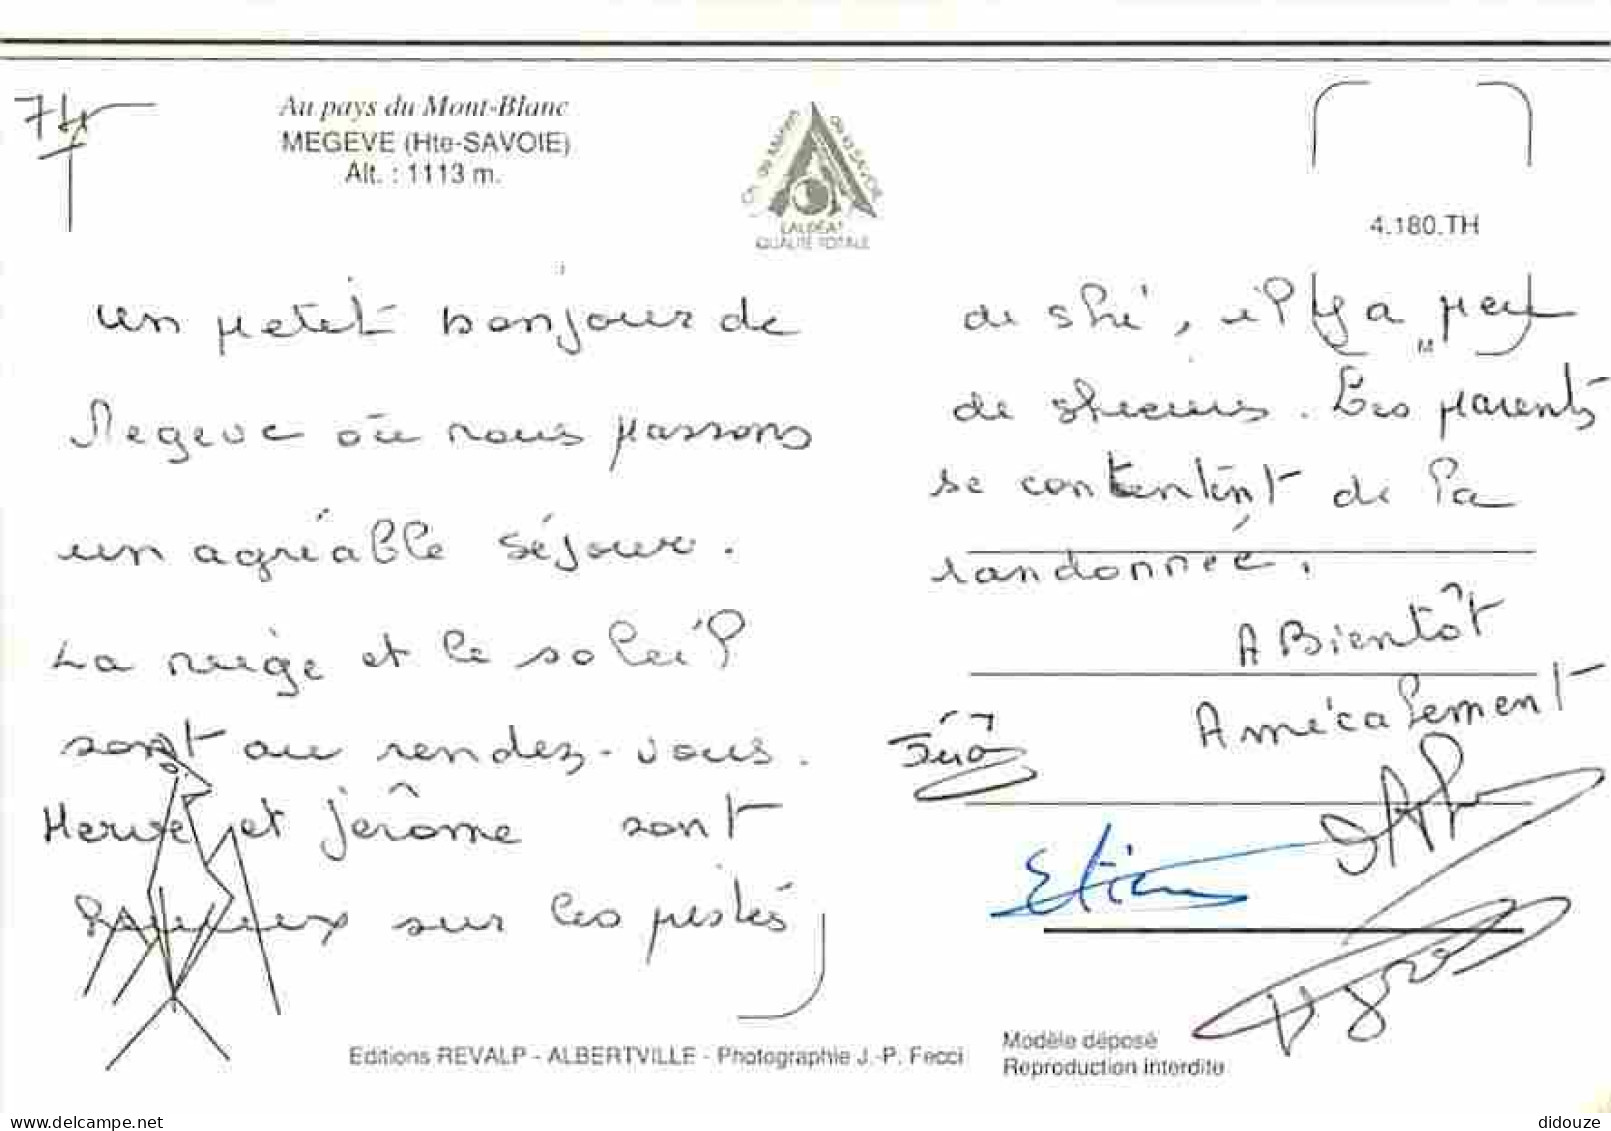 74
Au pays du Mont-Blanc
MEGEVE (Hte-SAVOIE)
Alt. : 1113 m.
de la SAVOIE
LAURÉAT
QUALITÉ TOTALE
4.180.TH
un petit bonjour de
Megeve où nous passons
un agréable séjour.
La neige et le soleil
sont au rendez-vous.
Herve et jérôme sont
heureux sur les pistes
de ski, il y a peu
M
de skieurs. Les parents
se contentent de la
randonnée.
A Bientôt
Amicalement
Etien
Editions REVALP - ALBERTVILLE - Photographie J.-P. Fecci
Modèle déposé
Reproduction interdite
delcampe.net
didouze